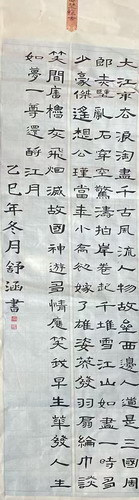 大江東去浪淘盡千古風流人物故壘西邊人道是三國周
郎赤壁亂石穿空驚濤拍岸卷起千堆雪江山如畫一時多
少豪傑遙想公瑾當年小喬初嫁了雄姿英發羽扇綸巾談
笑間檣櫓灰飛烟滅故國神遊多情應笑我早生華發人生
如夢一尊還酹江月
乙巳年冬月舒涵書